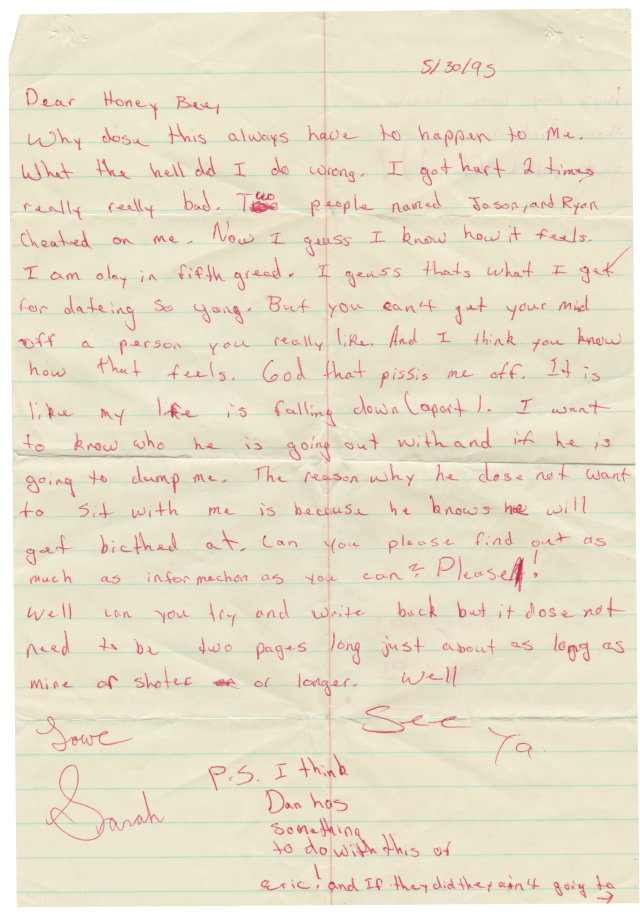 5/30/95
Dear Honey Bee,
Why dose this always have to happen to me.
What the hell did I do wrong. I got hurt 2 times
really really bad. Two people named Jason, and Ryan
Cheated on me. Now I geuss I know how it feels.
I am olay in fifth gread. I geuss thats what I get
for dateing so yong. But you can't get your mid
off a person you really like. And I think you know
how that feels. God that pissis me off. It is
like my life is falling down (apart). I want
to know who he is going out with and if he is
going to dump me. The reason why he dose not want
to sit with me is because he knows he will
get bicthed at. Can you please find out as
much as informachon as you can? Please!
Well can you try and write back but it dose not
need to be two pages long just about as long as
mine or shoter or longer. Well
See
Ya.
Love
Sarah
P.S. I think
Dan has
something
to do with this or
eric! and If they did they ain't goiy to
→